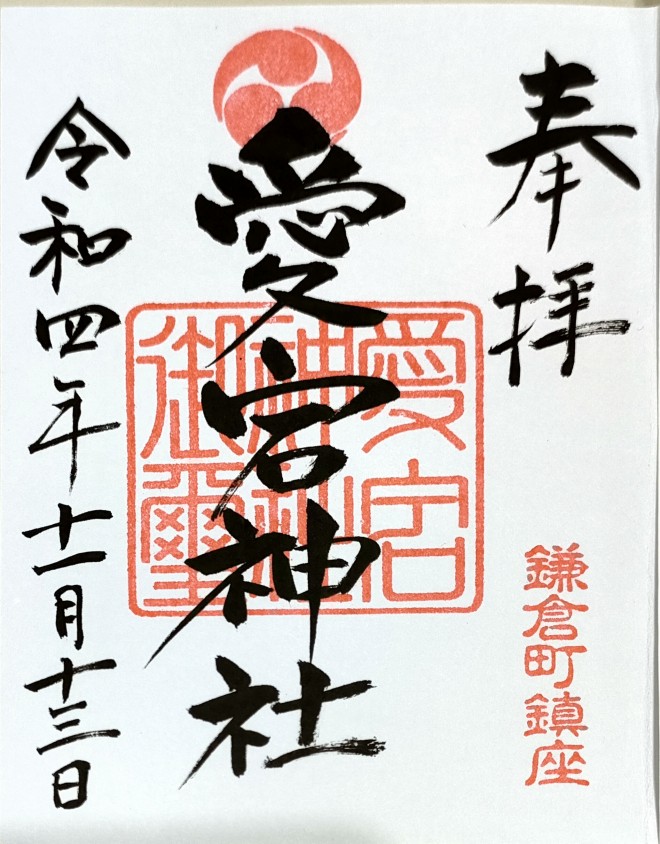 奉拝
鎌倉町鎮座
愛宕神社
愛宕
神社
御璽
令和四年十一月十三日